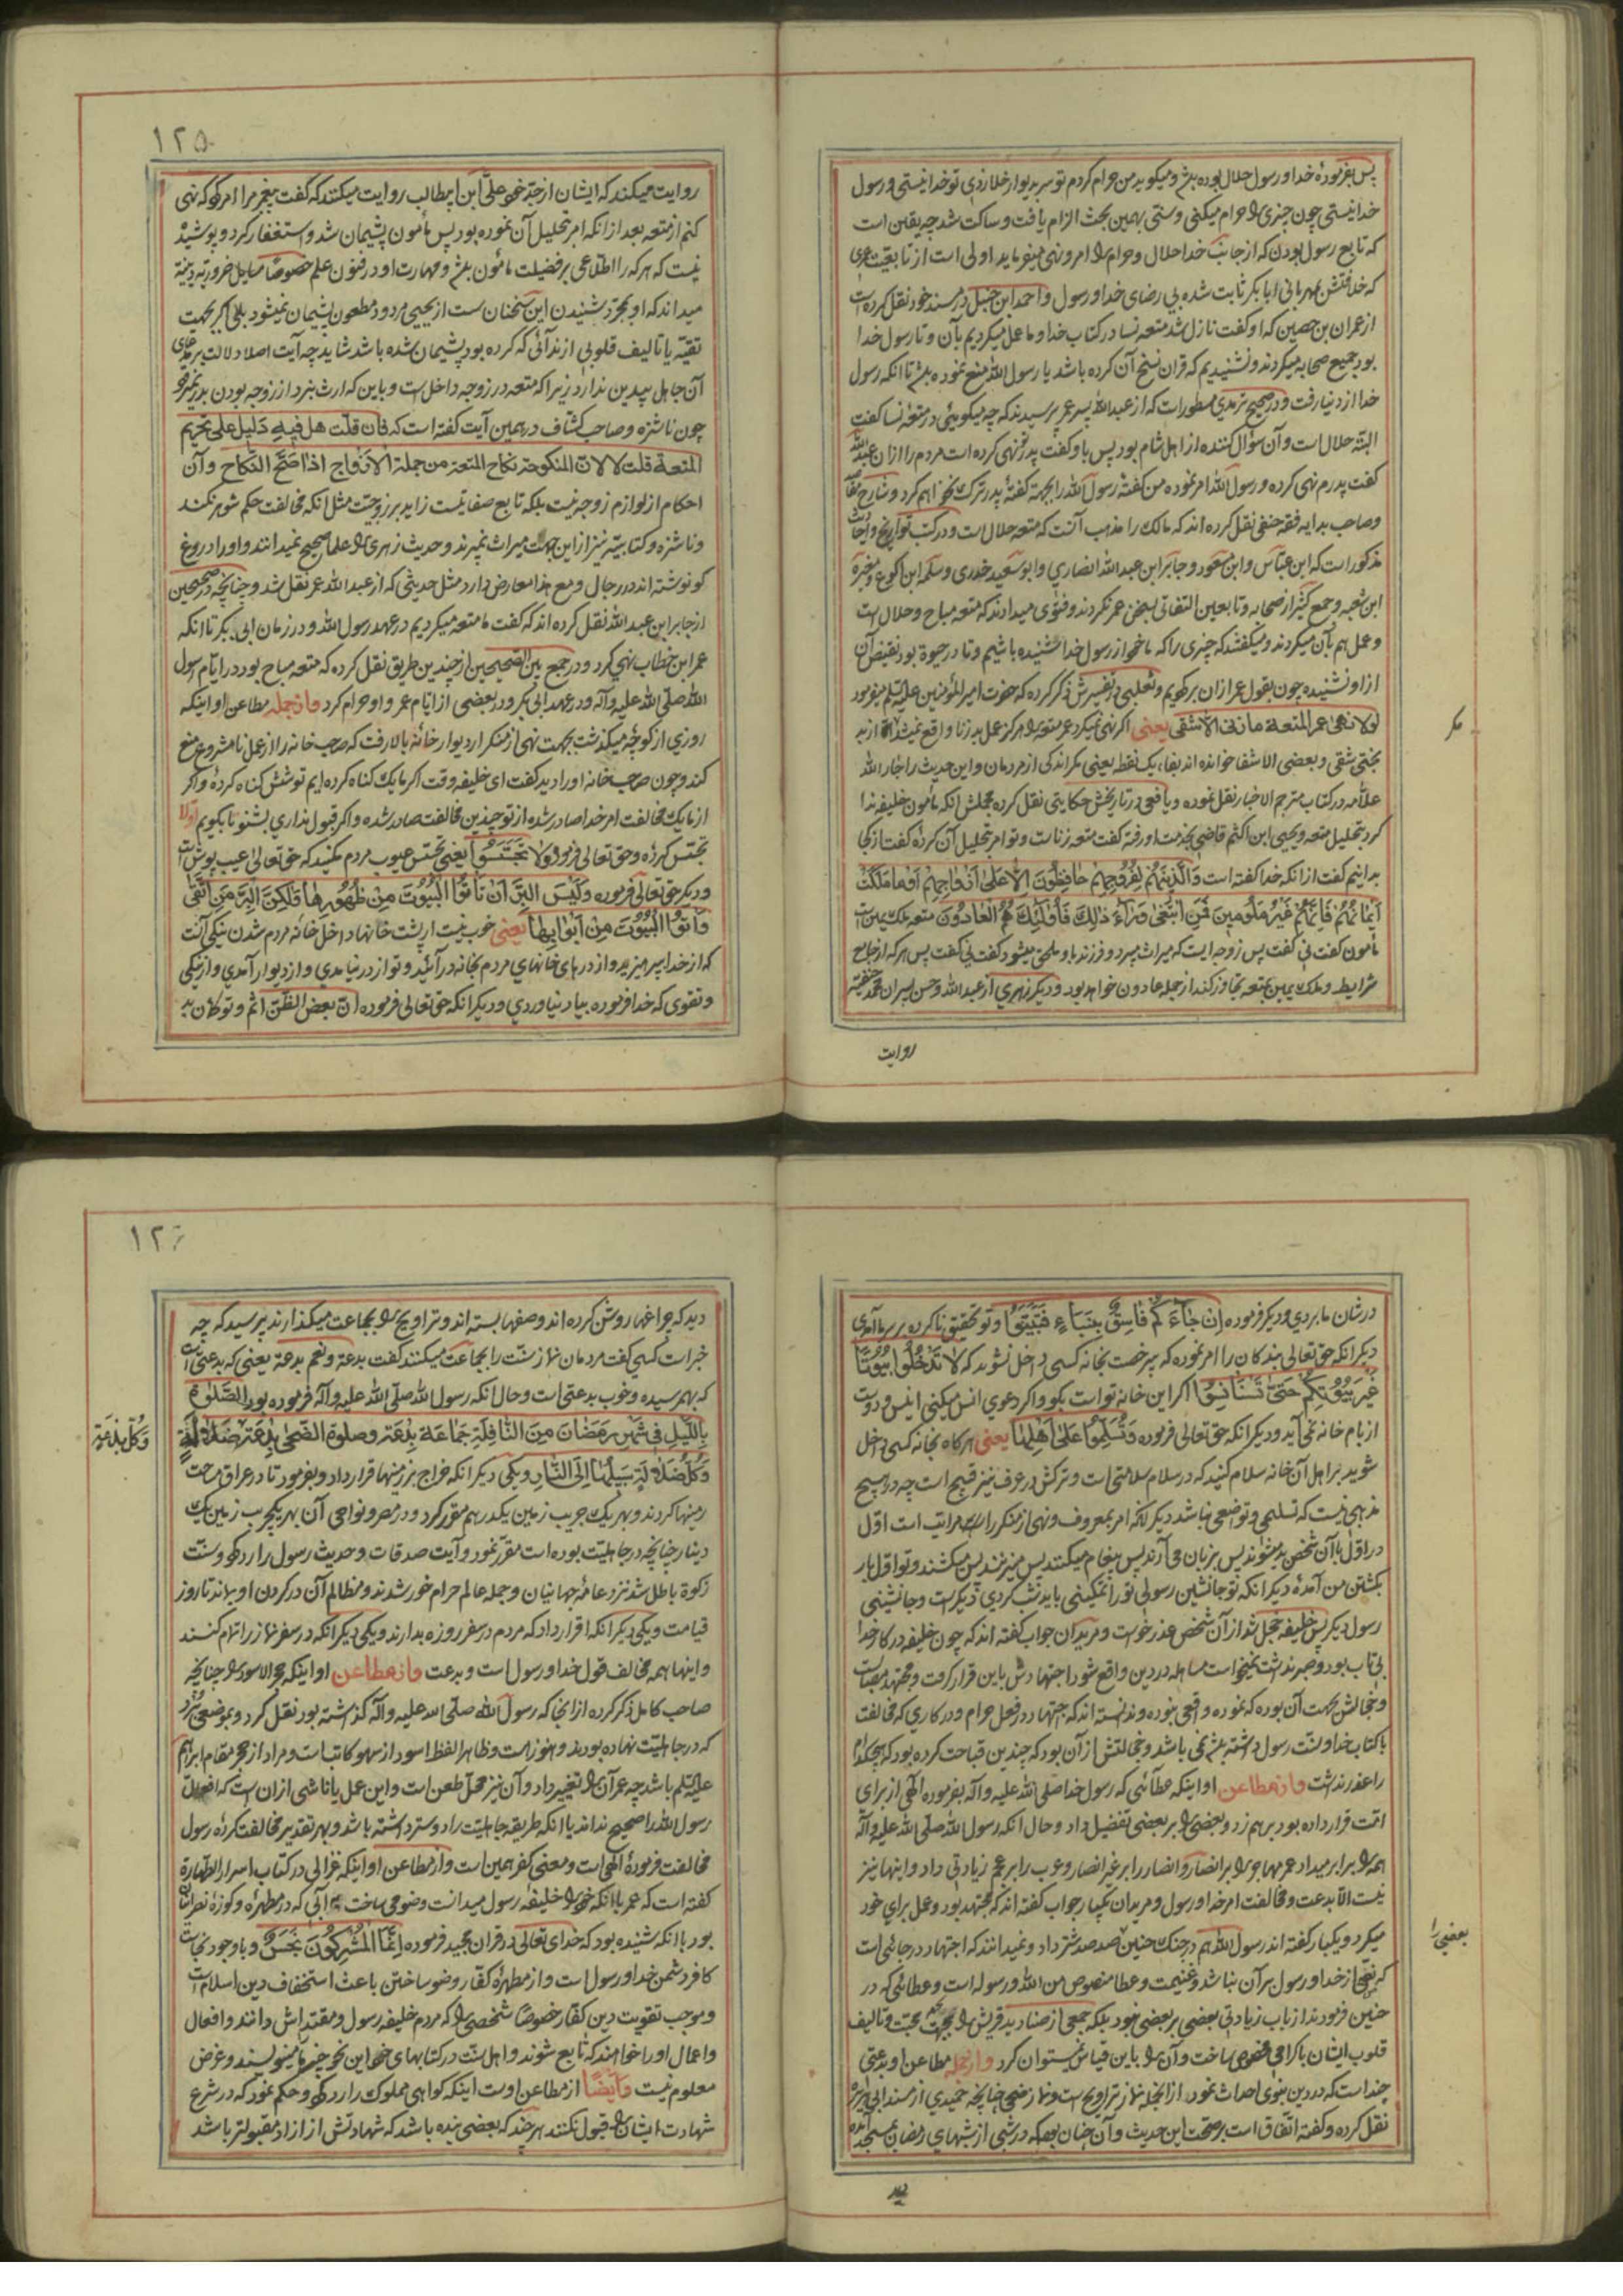 پس بفرموده خدا و رسول حلال بوده باشد و میکوید من حرام کردم تو سر بدیوار خلا زدی تو خدا نیستی و رسول
خدا نیستی چون چیزی را حرام میکنی و سنی بهمین بحث الزام یافت و ساکت شد چه یقین است
که تابع رسول بودن که از جانب خدا حلال و حرام را امر و نهی میفرماید اولی است از تابعیت عمری
که خلافتش بمهربانی ابا بکر ثابت شده بی رضای خدا و رسول و احمد ابن حنبل در مسند خود نقل کرده است
از عمران بن حصین که او کفت نازل شد متعه نسا در کتاب خدا و ما عمل میکردیم بآن و تا رسول خدا
بود جمیع صحابه میکردند و نشنیدیم که قران نسخ آن کرده باشد یا رسول الله منع نموده باشد تا انکه رسول
خدا از دنیا رفت و در صحیح ترمدی مسطور است که از عبد الله پسر عمر پرسیدند که چه میکوئی در متعه نسا کفت
البته حلال است و آن سؤال کننده از اهل شام بود پس باو کفت پدرت نهی کرده است مردم را از ان عبد الله
کفت پدرم نهی کرده و رسول الله امر نموده من کفته رسول الله را بجهة کفته پدر ترک نخواهم کرد و شارح مقاصد
وصاحب بدایه فقه حنفی نقل کرده اند که مالک را مذهب آنست که متعه حلال است و در کتب تواریخ و احادیث
مذکور است که ابن عباس و ابن مسعود و جابر ابن عبد الله انصاری و ابو سعید خدری و سلمه ابن اکوع و مغیره
ابن شعبه و جمع کثیر از صحابه و تابعین التفاتی بسخن عمر نکردند و فتوی میدادند که متعه مباح و حلال است
و عمل هم بآن میکردند و میکفتند که چیزی را که ما خود از رسول خدا شنیده باشیم و تا در حیوة بود نقیض آن
از او نشنیده چون بقول عمر از ان برکویم و ثعلبی در تفسیرش ذکر کرده که حضرت امیر المؤمنین علیه السلم میفرمود
لولا نهی عمر المتعة ما زنی الا شقی یعنی اکر نهی نمیکرد عمر متعه را هرکز عمل بد زنا واقع نمیشد الا از بد
بختی شقی و بعضی الا شفا خوانده اند بفا، یک نقطه یعنی مکر اندکی از مردمان و این حدیث را جار الله
علامه در کتاب مترجم الاخبار نقل نموده و یافعی در تاریخش حکایتی نقل کرده مجملش انکه مأمون خلیفه ندا
کرد بتحلیل متعه و یحیی ابن اکثم قاضی بخدمت او رفته کفت متعه زناست و تو امر بتحلیل آن کرده کفت از کجا
بدانیم کفت از انکه خدا کفته است وَالَّذِینَهُمْ لِفُرُوجِهِمْ حَافِظُونَ اِلَّا عَلیٰ اَزْوَاجِهِمْ اَوْ مَا مَلَکَتْ
اَیْمَانُهُمْ فَاِنَّهُمْ غَیْرُ مَلُومِینَ فَمَنِ ابْتَغیٰ وَرَاءَ ذٰلِکَ فَاُولٰئِکَ هُمُ الْعَادُونَ متعه ملک یمین است
مأمون کفت نی کفت پس زوجه ایست که میراث میبرد و فرزند باو ملحق میشود کفت نی کفت پس هر که از جامع
شرایط و ملک یمین بمتعه تجاوز کند از جمله عادون خواهد بود و دیکر زهری از عبد الله و حسن پسران محمد حنفیه
روایت
مکر
۱۲۵
روایت میکنند که ایشان از جد خود علی ابن ابیطالب روایت میکنند که کفت پیغمبر مرا امر کرد که نهی
کنم از متعه بعد از انکه امر بتحلیل آن نموده بود پس مأمون پشیمان شد و استغفار کرد و پوشیده
نیست که هر که را اطلاعی بر فضیلت مأمون باشد و مهارت او در فنون علم خصوصاً مسایل ضروریه دینیه
میداند که او بمجرد شنیدن این سخنان سست از یحیی مردود مطعون پشیمان نمیشود بلی اکر بجهت
تقیه یا تألیف قلوبی از ندائی که کرده بود پشیمان شده باشد شاید چه آیت اصلا دلالت بر مدعای
آن جاهل بیدین ندارد زیرا که متعه در زوجه داخلست و باین که ارث نبرد از زوجه بودن بدر نمیرود
چون ناشزه و صاحب کشاف در همین آیت کفته است که فان قلت هل فیه دلیل علی تحریم
المتعة قلت لا لان المنکوحة بنکاح المتعة من جملة الازواج اذا صح النکاح و آن
احکام از لوازم زوجه نیست بلکه تابع صفاتیست زاید بر زوجیت مثل انکه مخالفت حکم شوهر نکند
و ناشزه و کتابیه نیز از این جهت میراث نمیبرند و حدیث زهری را علما صحیح نمیدانند و او را دروغ
کو نوشته اند در رجال و مع هذا معارض دارد مثل حدیثی که از عبد الله عمر نقل شد و چنانچه در صحیحین
از جابر ابن عبد الله نقل کرده اند که کفت ما متعه میکردیم در عهد رسول الله و در زمان ابی بکر تا انکه
عمر ابن خطاب نهی کرد و در جمع بین الصحیحین از چندین طریق نقل کرده که متعه مباح بود در ایام رسول
الله صلی الله علیه وآله و در عهد ابی بکر و در بعضی از ایام عمر و او حرام کرد و از جمله مطاعن او اینکه
روزی از کوچه میکذشت بجهت نهی از منکر از دیوار خانهٔ بالا رفت که صاحب خانه را از عمل نامشروع منع
کند و چون صاحب خانه او را دید کفت ای خلیفه وقت اکر ما یک کناه کرده ایم تو شش کناه کردهٔ و اکر
از ما یک مخالفت امر خدا صادر شده از تو چندین مخالفت صادر شده و اکر قبول نداری بشنو تا بکویم اولا
تجسس کردهٔ و حق تعالی فرموده وَلَا تَجَسَّسُوا یعنی تجسس عیوب مردم مکنید که حق تعالی عیب پوش است
و دیکر حق تعالی فرموده وَلَیْسَ الْبِرُّ اَنْ تَأْتُوا الْبُیُوتَ مِنْ ظُهُورِهَا وَلٰکِنَّ الْبِرَّ مَنِ اتَّقیٰ
وَأْتُوا الْبُیُوتَ مِنْ اَبْوَابِهَا یعنی خوب نیست از پشت خانها داخل خانه مردم شدن نیکی آنست
که از خدا بپرهیزید و از درهای خانهای مردم بخانه در آئید و تو از در نیامدی و از دیوار آمدی و از نیکی
و تقوی که خدا فرموده بیاد نیاوردی و دیکر انکه حق تعالی فرموده ان بعض الظن اثم و تو ظن بد
در شان ما بردی و دیکر فرموده اِنْ جَاءَکُمْ فَاسِقٌ بِنَبَاءٍ فَتَبَیَّنُوا و تو تحقیق ناکرده بر سر ما آمدی
دیکر انکه حق تعالی بندکان را امر نموده که بیرخصت بخانه کسی داخل نشوید که لَا تَدْخُلُوا بُیُوتًا
غَیْرَ بُیُوتِکُمْ حَتّیٰ تَسْتَأْنِسُوا اکر این خانه تو است بکو و اکر دعوی انس میکنی انیس و دوست
از بام خانه نمی آید و دیکر انکه حق تعالی فرموده وَتُسَلِّمُوا عَلیٰ اَهْلِهَا یعنی هر کاه بخانه کسی داخل
شوید بر اهل آن خانه سلام کنید که در سلام سلامتی است و ترکش در عرف نیز قبیح است چه در هیچ
مذهبی نیست که تسلیمی و تواضعی نباشد دیکر انکه امر بمعروف و نهی از منکر را مراتب است اول
در اول باآن شخص بد میشوند پس بزبان می آرند پس پیغام میکنند پس میزنند پس میکشند و تو اول بار
بکشتن من آمدهٔ دیکر انکه تو جانشین رسولی تو را تمکینی باید نشب کردی دیکر است و جانشینی
رسول دیکر پس خلیفه خجل شد از آن شخص عذر خواست و مریدان جواب کفته اند که چون خلیفه در کار خدا
بی تاب بود و صبر نداشت نمیخواست مساهله در دین واقع شود اجتهادش باین قرار کرفت و مجتهد مصیبست
و خجالتش بجهت آن بوده که نموده واقعی نبوده و ندانسته اند که اجتهاد در فعل حرام و در کاری که مخالفت
با کتاب خدا و سنت رسول داشته باشد نمی باشد و خجالتش از آن بود که چندین قباحت کرده بود که هیچکدام
را عذر نداشت و از مطاعن او اینکه عطائی که رسول خدا صلی الله علیه وآله بفرموده الهی از برای
امت قرار داده بود بر هم زد و بعضی را بر بعضی تفضیل داد و حال انکه رسول الله صلی الله علیه وآله
همه را برابر میداد عمر مهاجر را بر انصار و انصار را بر غیر انصار و عرب را بر عجم زیادتی داد و اینها نیز
نیست الا بدعت و مخالفت امر خدا و رسول و مریدان یکبار جواب کفته اند که مجتهد بود و عمل برای خود
میکرد و یکبار کفته اند رسول الله هم در جنک حنین صد صد شتر داد و نمیدانند که اجتهاد در جائی است
که نصی از خدا و رسول بر آن نباشد و غنیمت و عطا منصوص من الله و رسوله است و عطائی که در
حنین فرمودند از باب زیادتی بعضی بر بعضی نبود بلکه جمعی از صنادید قریش را بجهت محبت و تألیف
قلوب ایشان باکرامی مخصوص ساخت و آن را باین قیاس نمیتوان کرد و از جمله مطاعن او بدعتی
چند است که در دین نبوی احداث نمود، از انجمله نماز تراویح است و نماز ضحی چنانچه حمیدی از مسند ابی هریره
نقل کرده و کفته اتفاق است بر صحت این حدیث و آن چنان بود که در شبی از شبهای رمضان بمسجد آمده
دید
بعضی را
۱۲۶
دید که چراغها روشن کرده اند و صفها بسته اند و تراویح را بجماعت میکذارند پرسید که چه
خبر است کسی کفت مردمان نماز سنت را بجماعت میکنند کفت بدعة و نعم بدعة یعنی که بدعتی است
که بهم رسیده و خوب بدعتی است و حال انکه رسول الله صلی الله علیه وآله فرموده بود الصَّلوٰة
بِاللَّیْلِ فِی شَهْرِ رَمَضَانَ مِنَ النَّافِلَةِ جَمَاعَة بِدْعَة وصلوة الضُّحیٰ بِدْعَة ضَلَالَة
وَکُلُّ بِدْعَة
وَکُلُّ ضَلَالَةٍ سَبِیلُهَا اِلَی النَّارِ و یکی دیکر انکه خراج بر زمینها قرار داد و بفرمود تا در عراق مساحت
زمینها کردند و بهر یک جریب زمین یکدرهم مقرر کرد و در مصر و نواحی آن بهر یکجریب زمین یک
دینار چنانچه در جاهلیت بوده است مقرر نمود و آیت صدقات و حدیث رسول را رد کرد و سنت
زکوة باطل شد نزد عامه جهانیان و جمله عالم حرام خور شدند و مظالم آن در کردن او بماند تا روز
قیامت و یکی دیکر انکه اقرار داد که مردم در سفر روزه بدارند و یکی دیکر انکه در سفر نماز را تمام کنند
و اینها همه مخالف قول خدا و رسول است و بدعت و از مطاعن او اینکه حجر الاسود را چنانچه
صاحب کامل ذکر کرده از انجا که رسول الله صلی الله علیه وآله کذاشته بود نقل کرد و بموضعی برد
که در جاهلیت نهاده بودند و هنوز انست و ظاهرا لفظ اسود از سهو کاتب است و مراد از حجر مقام ابراهیم
علیه السلم باشد چه عمر آن را تغییر داد و آن نیز محل طعن است و این عمل یا ناشی از ان است که افعال
رسول الله را صحیح نداند یا انکه طریقه جاهلیت را دوستر داشته باشد و بهر تقدیر مخالفت کرده رسول
مخالفت فرمودهٔ الهی است و معنی کفر همین است و از مطاعن او اینکه غزالی در کتاب اسرار الطهارة
کفته است که عمر با انکه خود را خلیفه رسول میدانست وضو می ساخت به آبی که در مطهره و کوزهٔ نصرانیان
بود با انکه شنیده بود که خدای تعالی در قران مجید فرموده اِنَّمَا الْمُشْرِکُونَ نَجَسٌ و با وجود نجاست
کافر دشمن خدا و رسول است و از مطهرهٔ کفار وضو ساختن باعث استخفاف دین اسلام است
و موجب تقویت دین کفار خصوصاً شخصی را که مردم خلیفه رسول و مقتداش دانند و افعال
و اعمال او را خواهند که تابع شوند و اهل سنت در کتابهای خود این نحو چیزها مینویسند و غرض
معلوم نیست وَاَیْضًا از مطاعن اوست اینکه کواهی مملوک را رد کرد و حکم نمود که در شرع
شهادت ایشان را قبول نکنند هر چند که بعضی بنده باشد که شهادتش از ازاد مقبولتر باشد